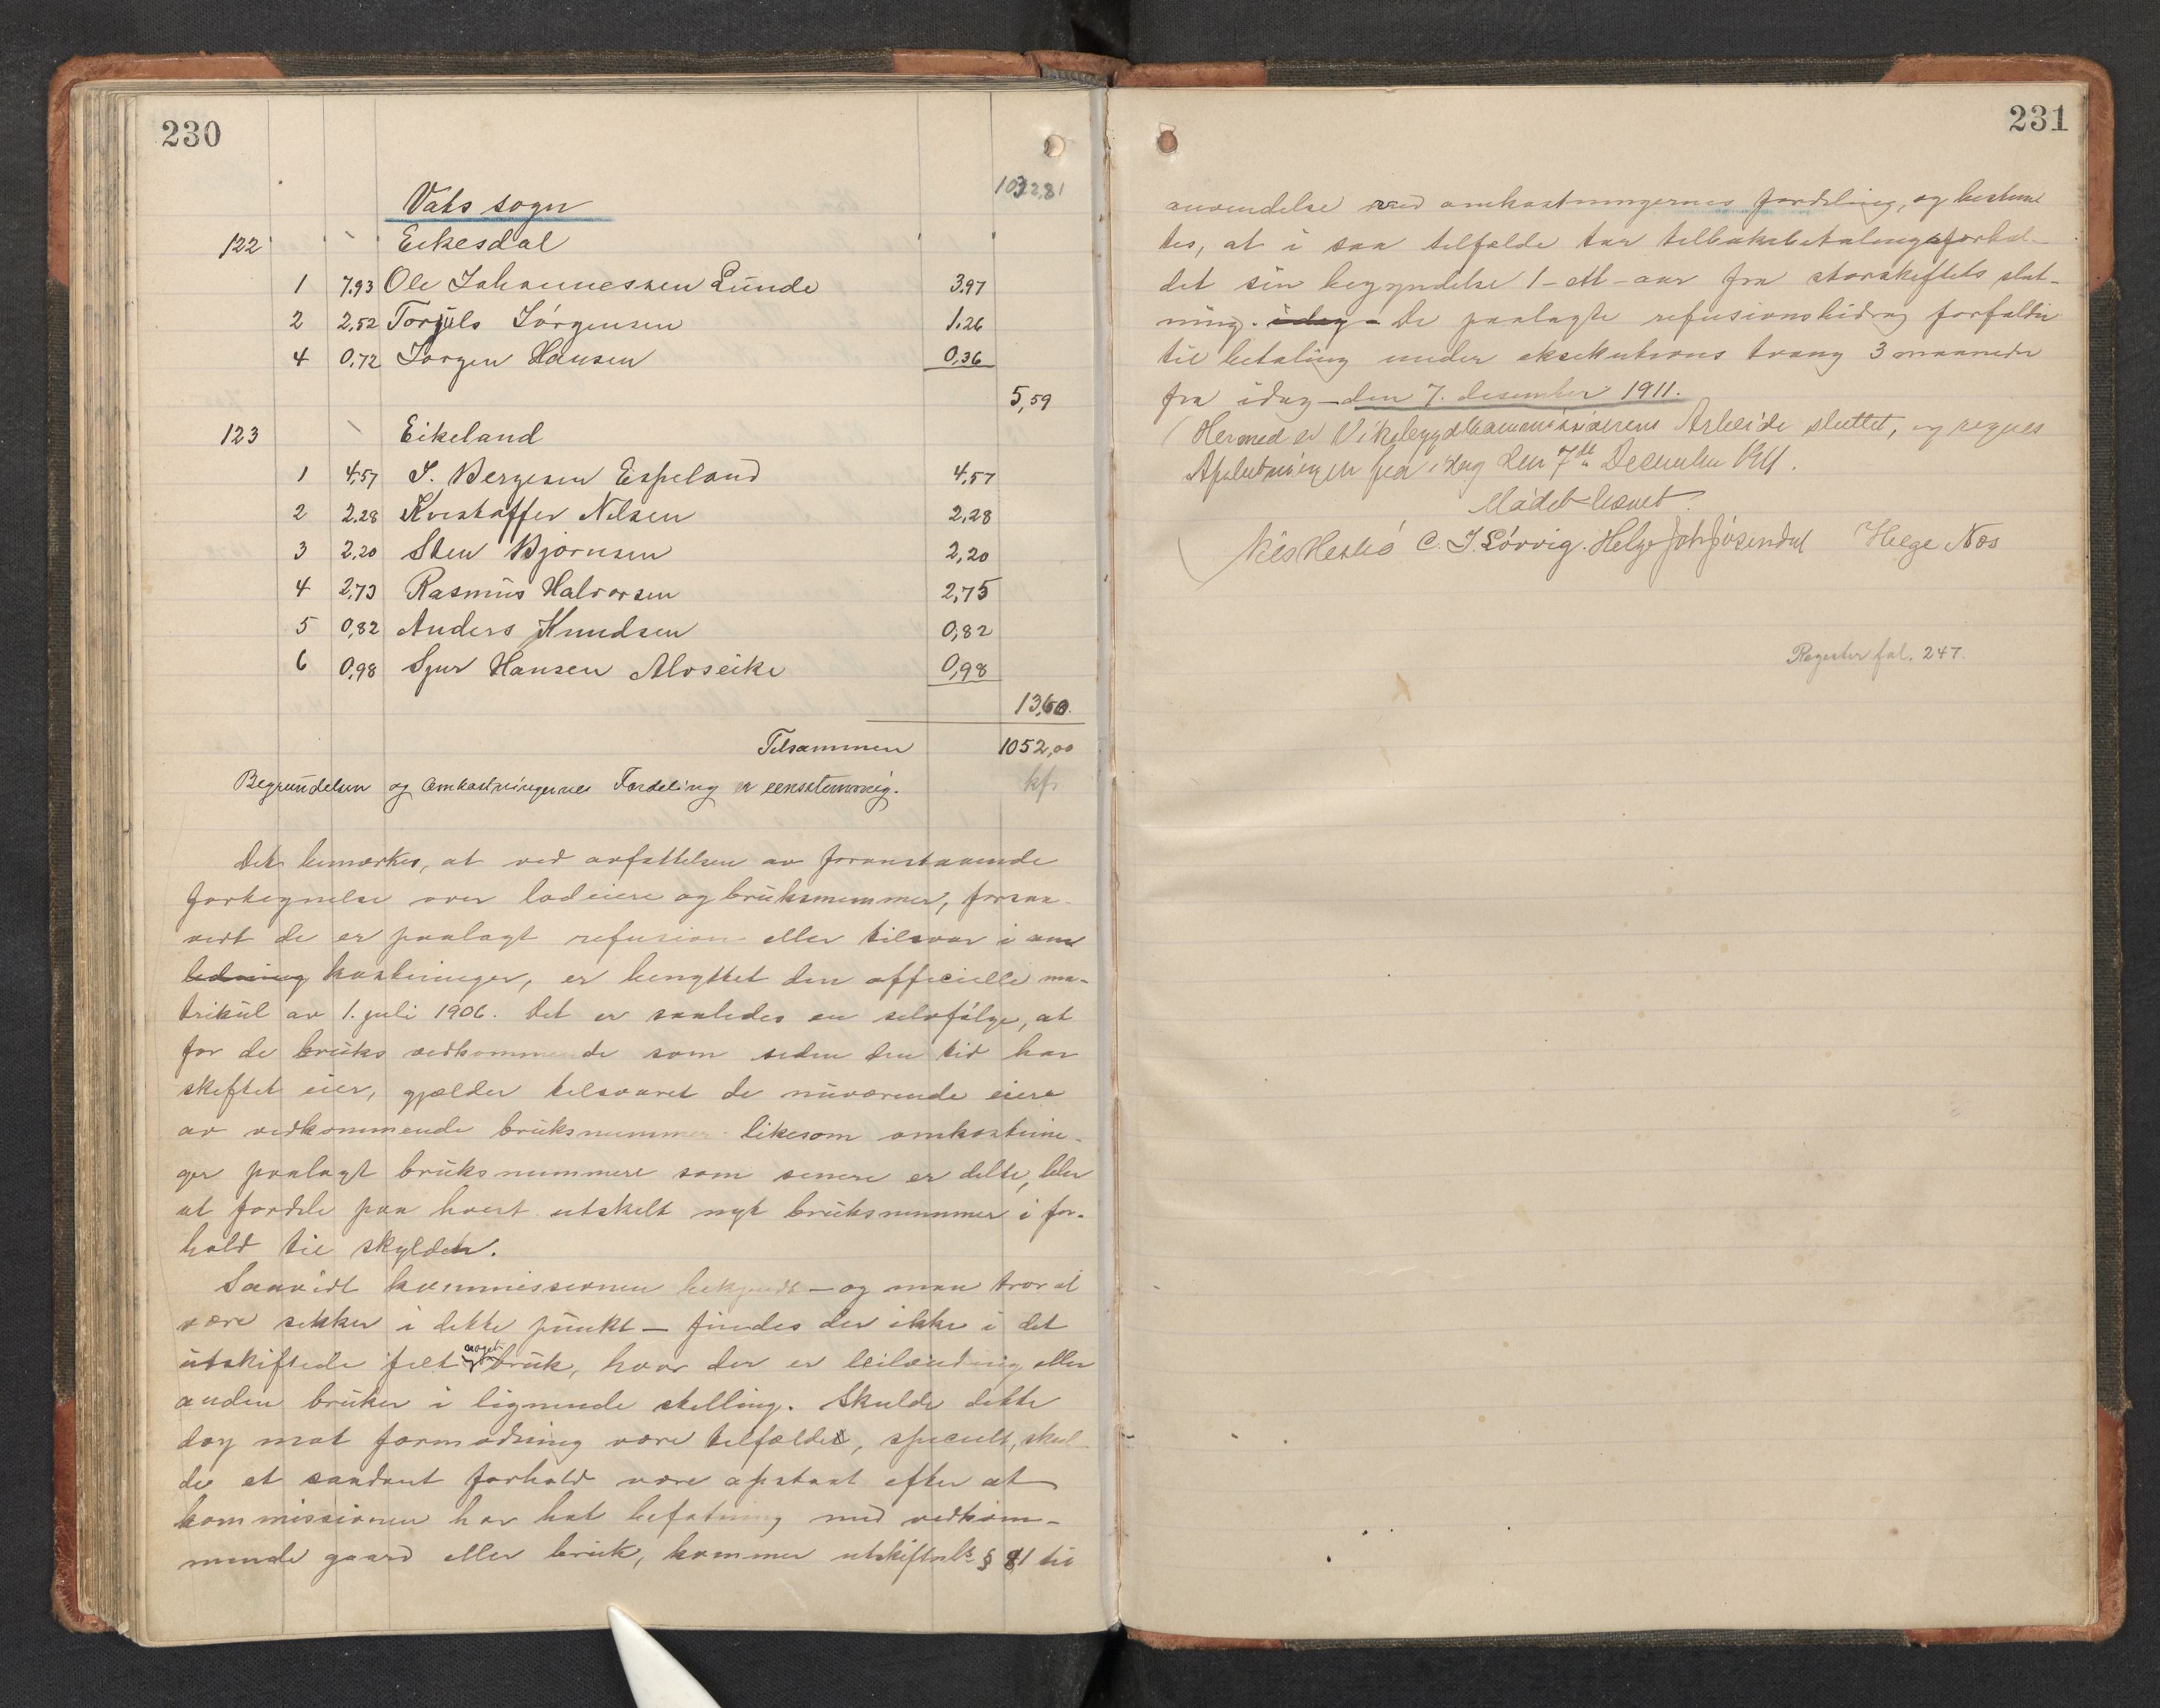 230
1032,81
Vats sogn
122 Eikesdal
1 7,93 Ole Johannessen Lunde 3,97
2 2,52 Torjuls Jørgensen 1,26
4 0,72 Jørgen Hansen 0,36
5,59
123 Eikeland
1 4,57 S. Bergesen Espeland 4,57
2 2,28 Kristoffer Nilsen 2,28
3 2,20 Sten Bjørnsen 2,20
4 2,73 Rasmus Halvorsen 2,75
5 0,82 Anders Knudsen 0,82
6 0,98 Sjur Hansen Alvseike 0,98
13,60
Tilsammen 1052,00
Begrundelsen og Omkostningernes Fordeling er eenstemmig.
Det bemærkes, at ved avfattelsen av foranstaaende
fortegnelse over lodeiere og bruksnummer, forsaa-
vidt de er paalagt refusion eller tilsvar i om
ledning kostninger, er benyttet den officielle ma-
trikul av 1. juli 1906. Det er saaledes en selvfølge, at
for de bruks vedkommende som siden den tid har
skiftet eier, gjælder tilsvaret de nuværende eiere
av vedkommende bruksnummer likesom omkostnin-
ger paalagt bruksnummere som senere er delte, blir
at fordele paa hvert utskilt nyt bruksnummer i for-
hold til skylden.
Saavidt kommissionen bekjendt — og man tror at
være sikker i dette punkt — findes der ikke i det
utskiftede felt noget bruk, hvor der er leilænding eller
anden bruker i lignende stilling. Skulde dette
dog mot formodning være tilfældet, specielt, skul-
de et saadant forhold være opstaat efter at
kommissionen har hat befatning med vedkom-
mende gaard eller bruk, kommer utskiftnls § 81 til
231
anvendelse ved omkostningernes fordeling, og bestem
tes, at i saa tilfælde tar tilbakebetalingsforhol-
det sin begyndelse 1 - ett - aar fra storskiftets slut-
ning. idag - De paalagte refusionsbidrag forfalder
til betaling under eksekutions tvang 3 maaneder
fra idag — den 7. desember 1911.
Hermed er Vikebygdkommissionens Arbeide sluttet, og regnes
Afslutningen fra idag den 7de December 1911.
Mødet hævet.
Nils Heskø C. J. Lørvig. Helge Joh Jøsendal Helge Næs
Register fol. 247.